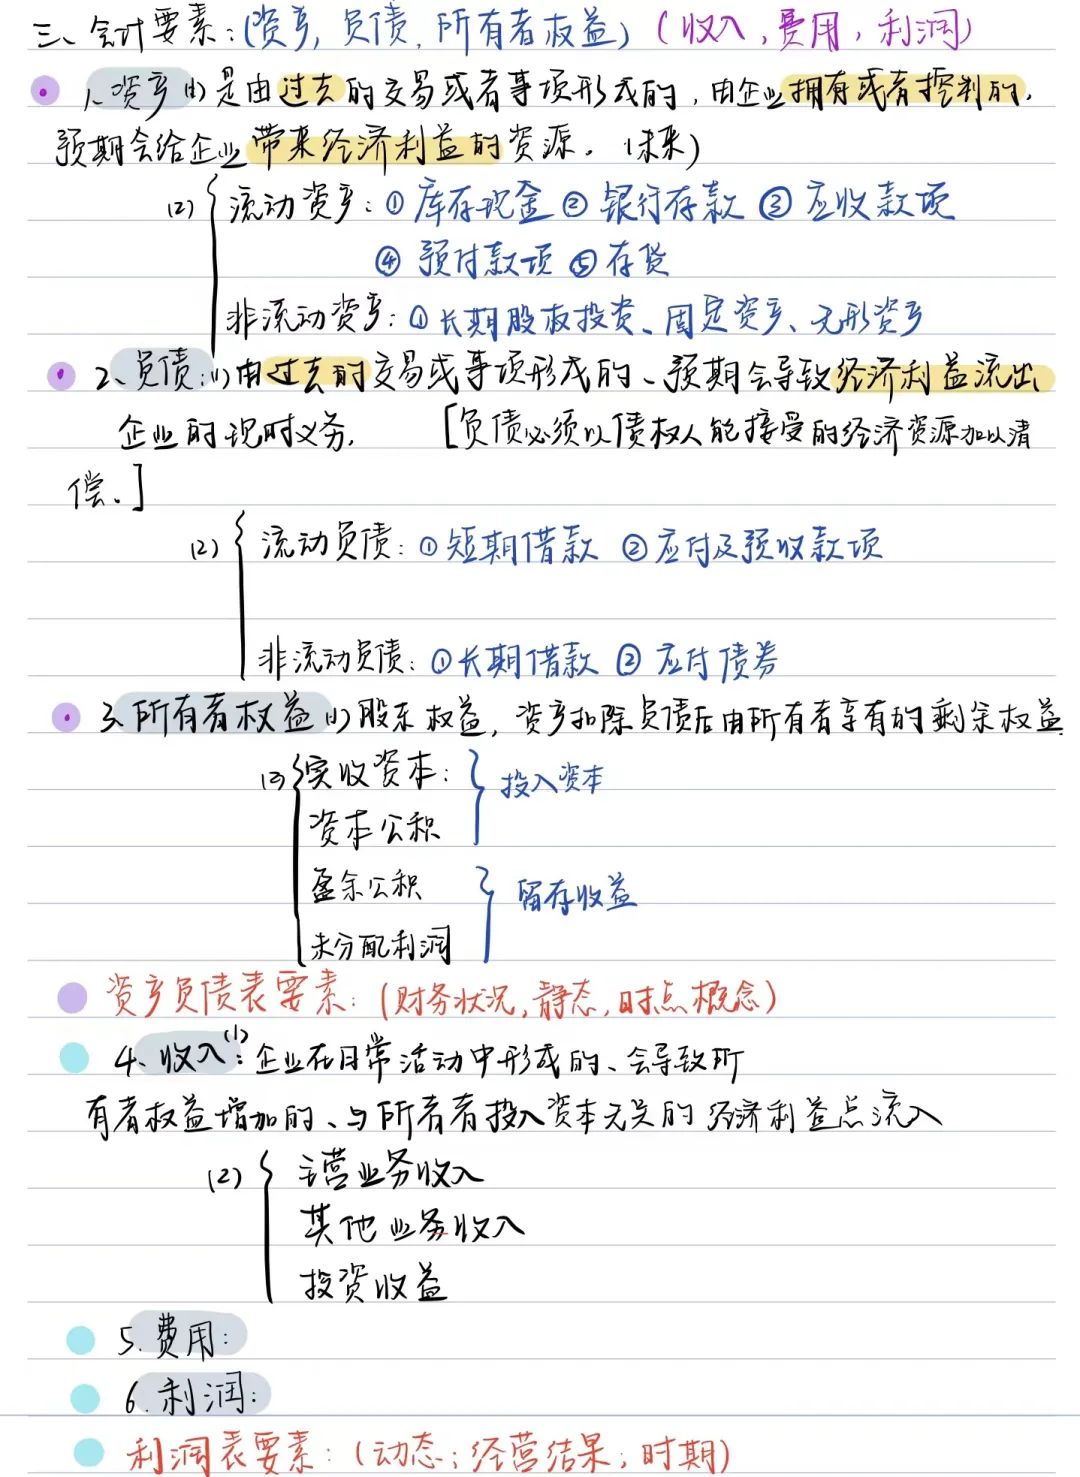 三、会计要素:(资产,负债,所有者权益)(收入,费用,利润)
1、资产(1)是由过去的交易或者事项形成的,由企业拥有或者控制的,
预期会给企业带来经济利益的资源。(未来)
(2) 流动资产:①库存现金②银行存款③应收款项
④预付款项⑤存货
非流动资产:①长期股权投资、固定资产、无形资产
2、负债:(1)由过去的交易或事项形成的、预期会导致经济利益流出
企业的现时义务, [负债必须以债权人能接受的经济资源加以清
偿。]
(2) 流动负债:①短期借款 ②应付及预收款项
非流动负债:①长期借款 ②应付债券
3、所有者权益(1)股东权益,资产扣除负债后由所有者享有的剩余权益
(2) 实收资本: 投入资本
资本公积
盈余公积 留存收益
未分配利润
资产负债表要素:(财务状况,静态,时点概念)
4、收入(1):企业在日常活动中形成的、会导致所
有者权益增加的、与所有者投入资本无关的经济利益总流入
(2) 主营业务收入
其他业务收入
投资收益
5.费用:
6.利润:
利润表要素:(动态;经营结果;时期)